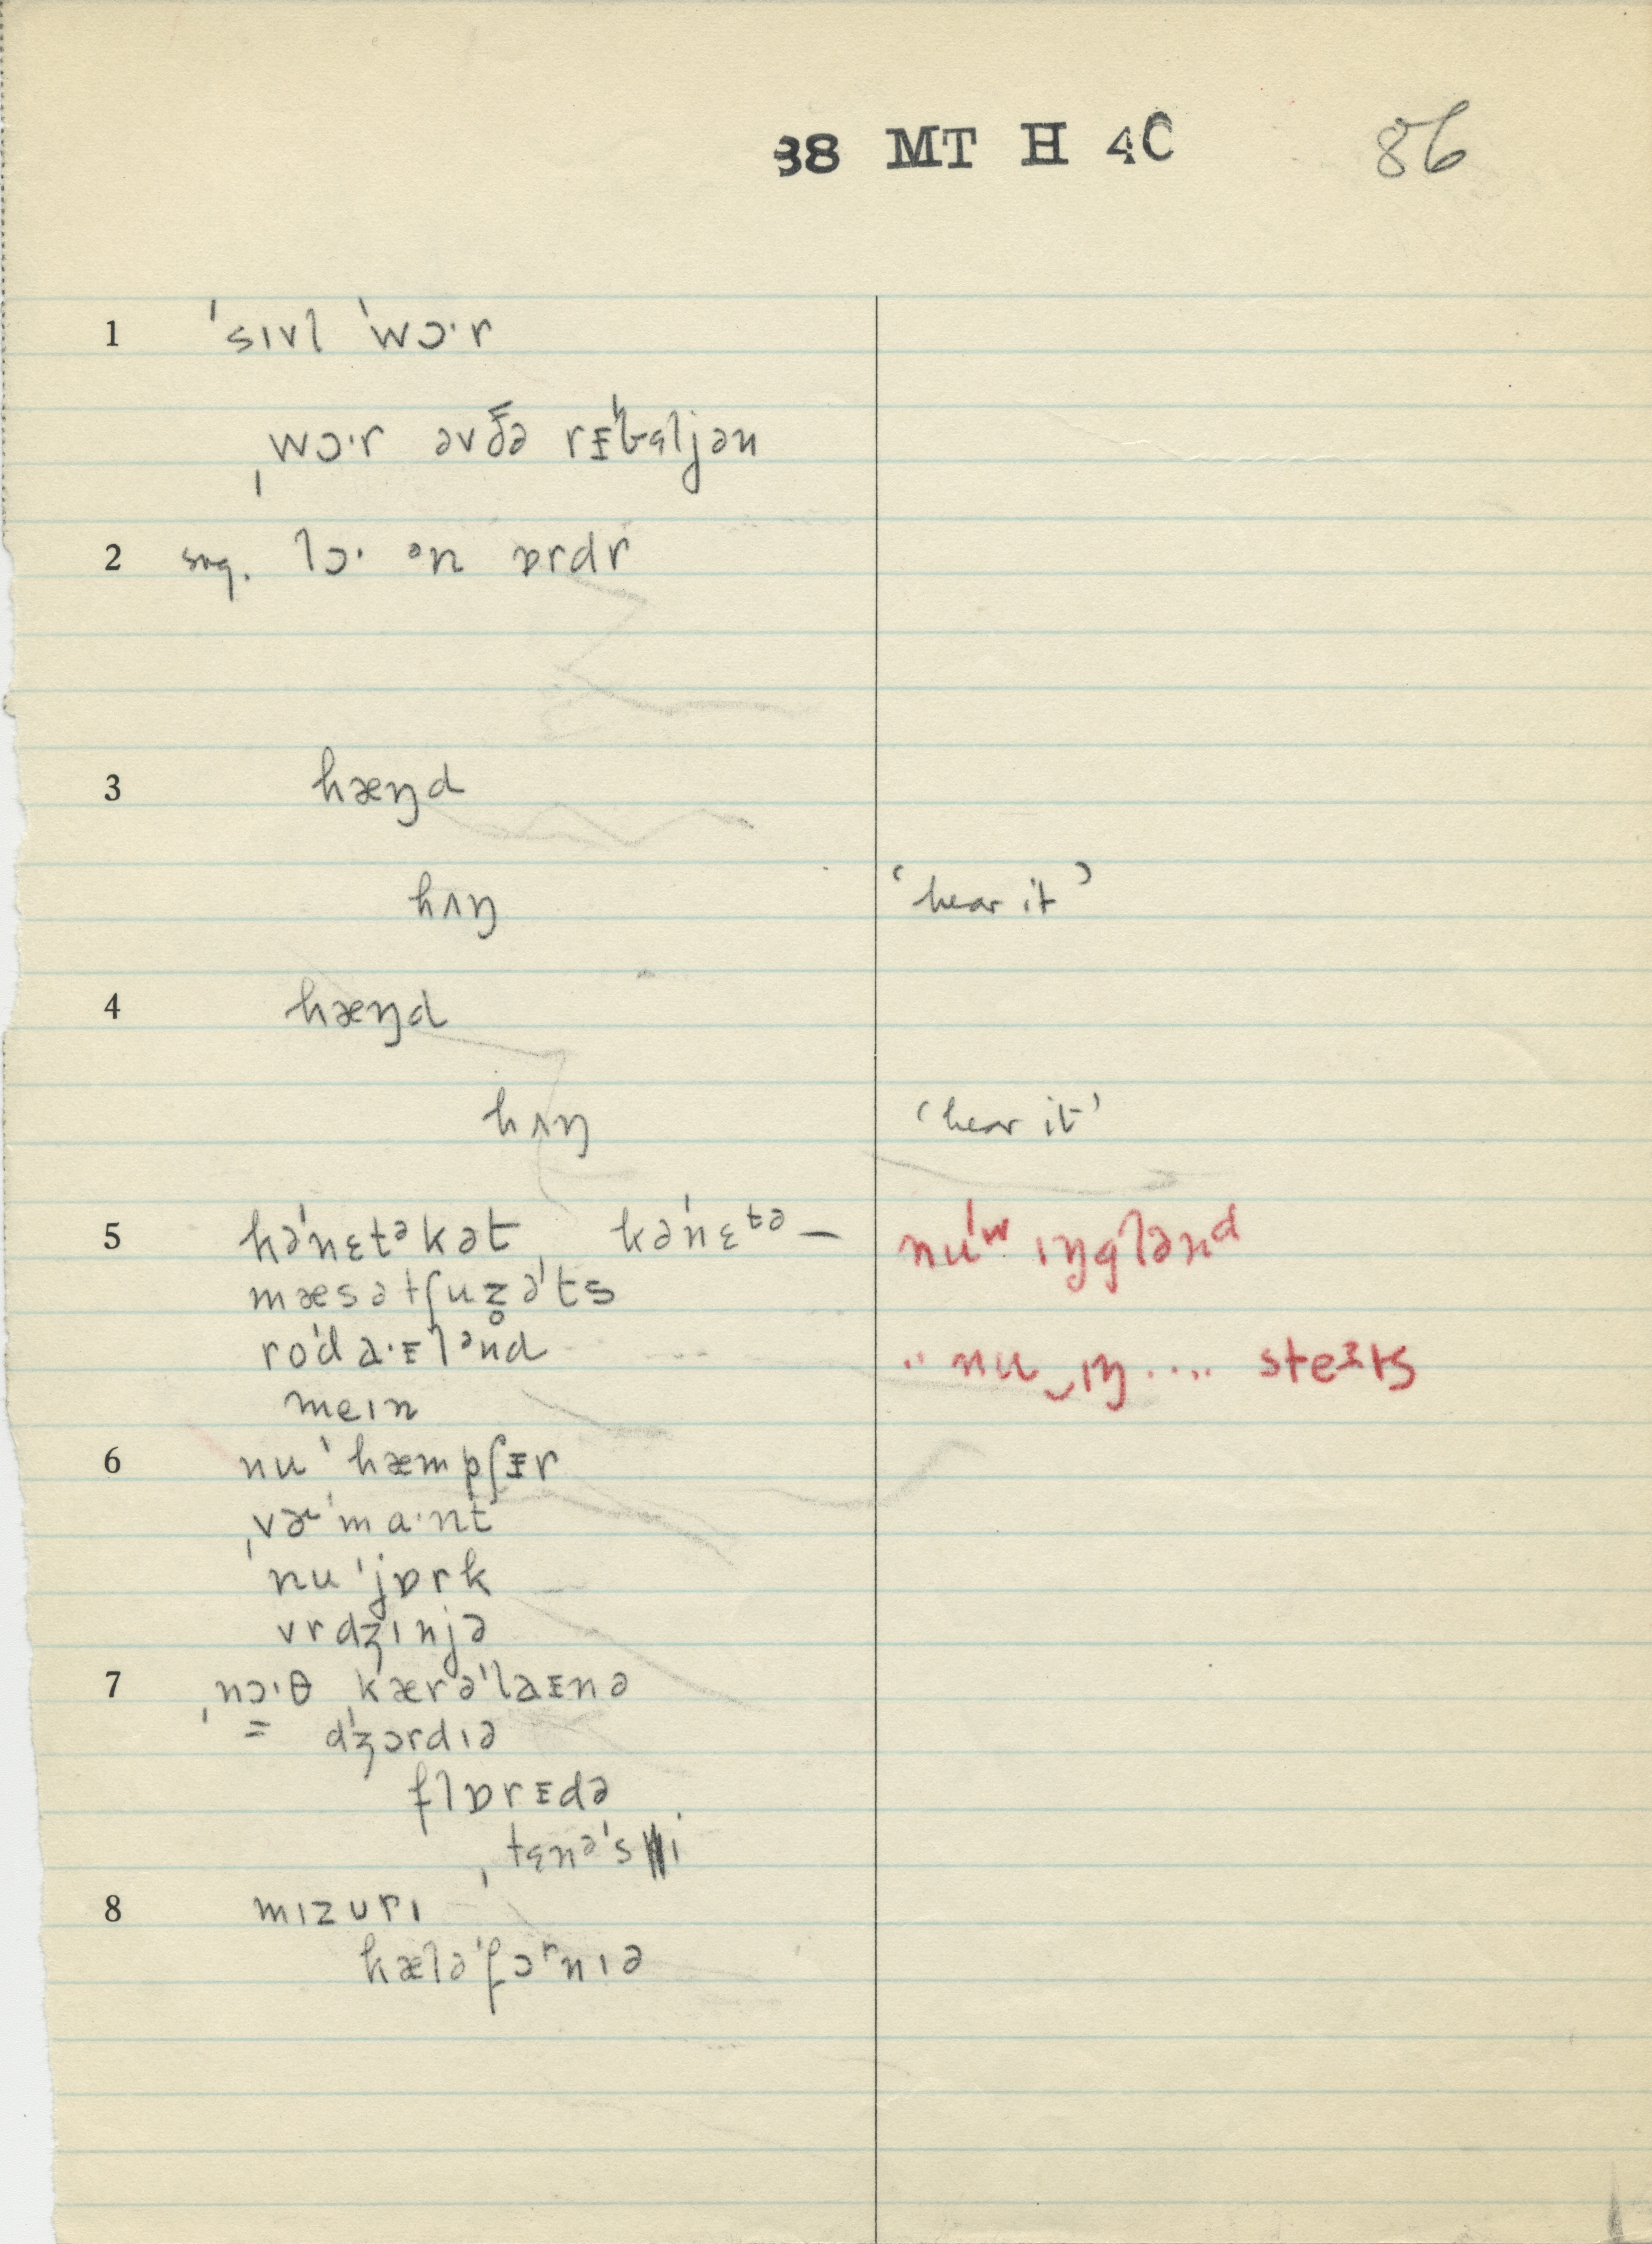 38 MT H 4C 86
1 ˈsɪvl ˈwɔ·r
ˌwɔ·r əvðə rᵻˈbɛljən
2 sug. lɔ· ᵊn ɒrdr
3 hæŋd
hʌŋ ‘hear it’
4 hæŋd
hʌŋ ‘hear it’
5 kəˈnɛtᵊkət, kəˈnɛtə – nuˈʷ ɪŋglənd
mæsətʃuz̥əˈts
roˈd a·ᵻlᵊnd ·· nu‿ɪŋ .... steᵻts
meɪn
6 nuˈhæmpʃᵻr
ˌvɚˈma·nt
nuˈjɒrk
vrdʒɪnjə
7 ˌnɔ·θ kærəˈlaᵻnə
= dʒɔrdɪə
flɒrᵻdə
ˌtɛnəˈsi
8 mɪzʊrɪ
kæləˈfɔʳnɪə